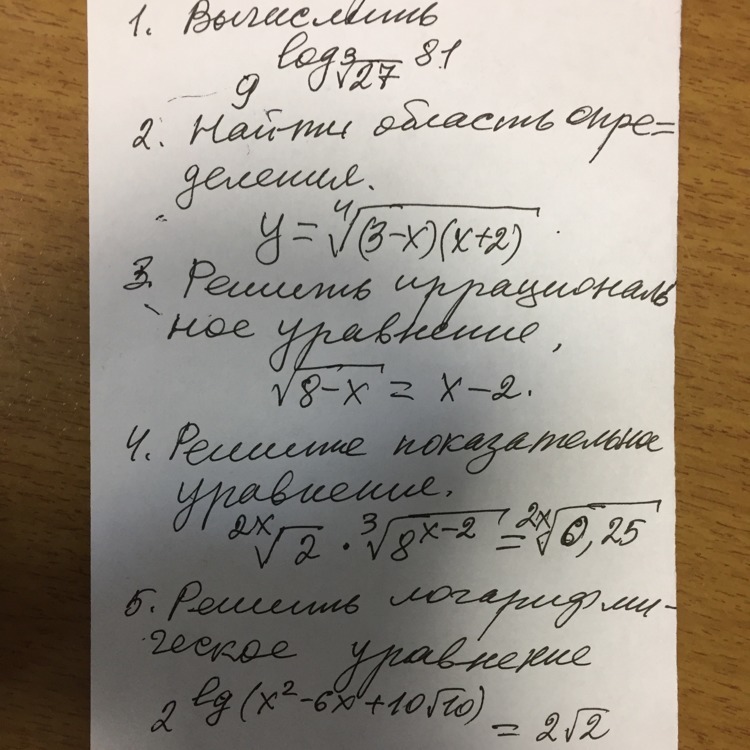 1. Вычислить
9^{log_{\sqrt[3]{27}} 81}
2. Найти область опре=
деления.
y = \sqrt[4]{(3-x)(x+2)}
3. Решить иррациональ
ное уравнение,
\sqrt{8-x} = x-2.
4. Решите показательное
уравнение.
\sqrt[2x]{2} · \sqrt[3]{8^{x-2}} = \sqrt[2x]{0,25}
5. Решить логарифми-
ческое уравнение
2^{lg(x^2-6x+10\sqrt{10})} = 2\sqrt{2}